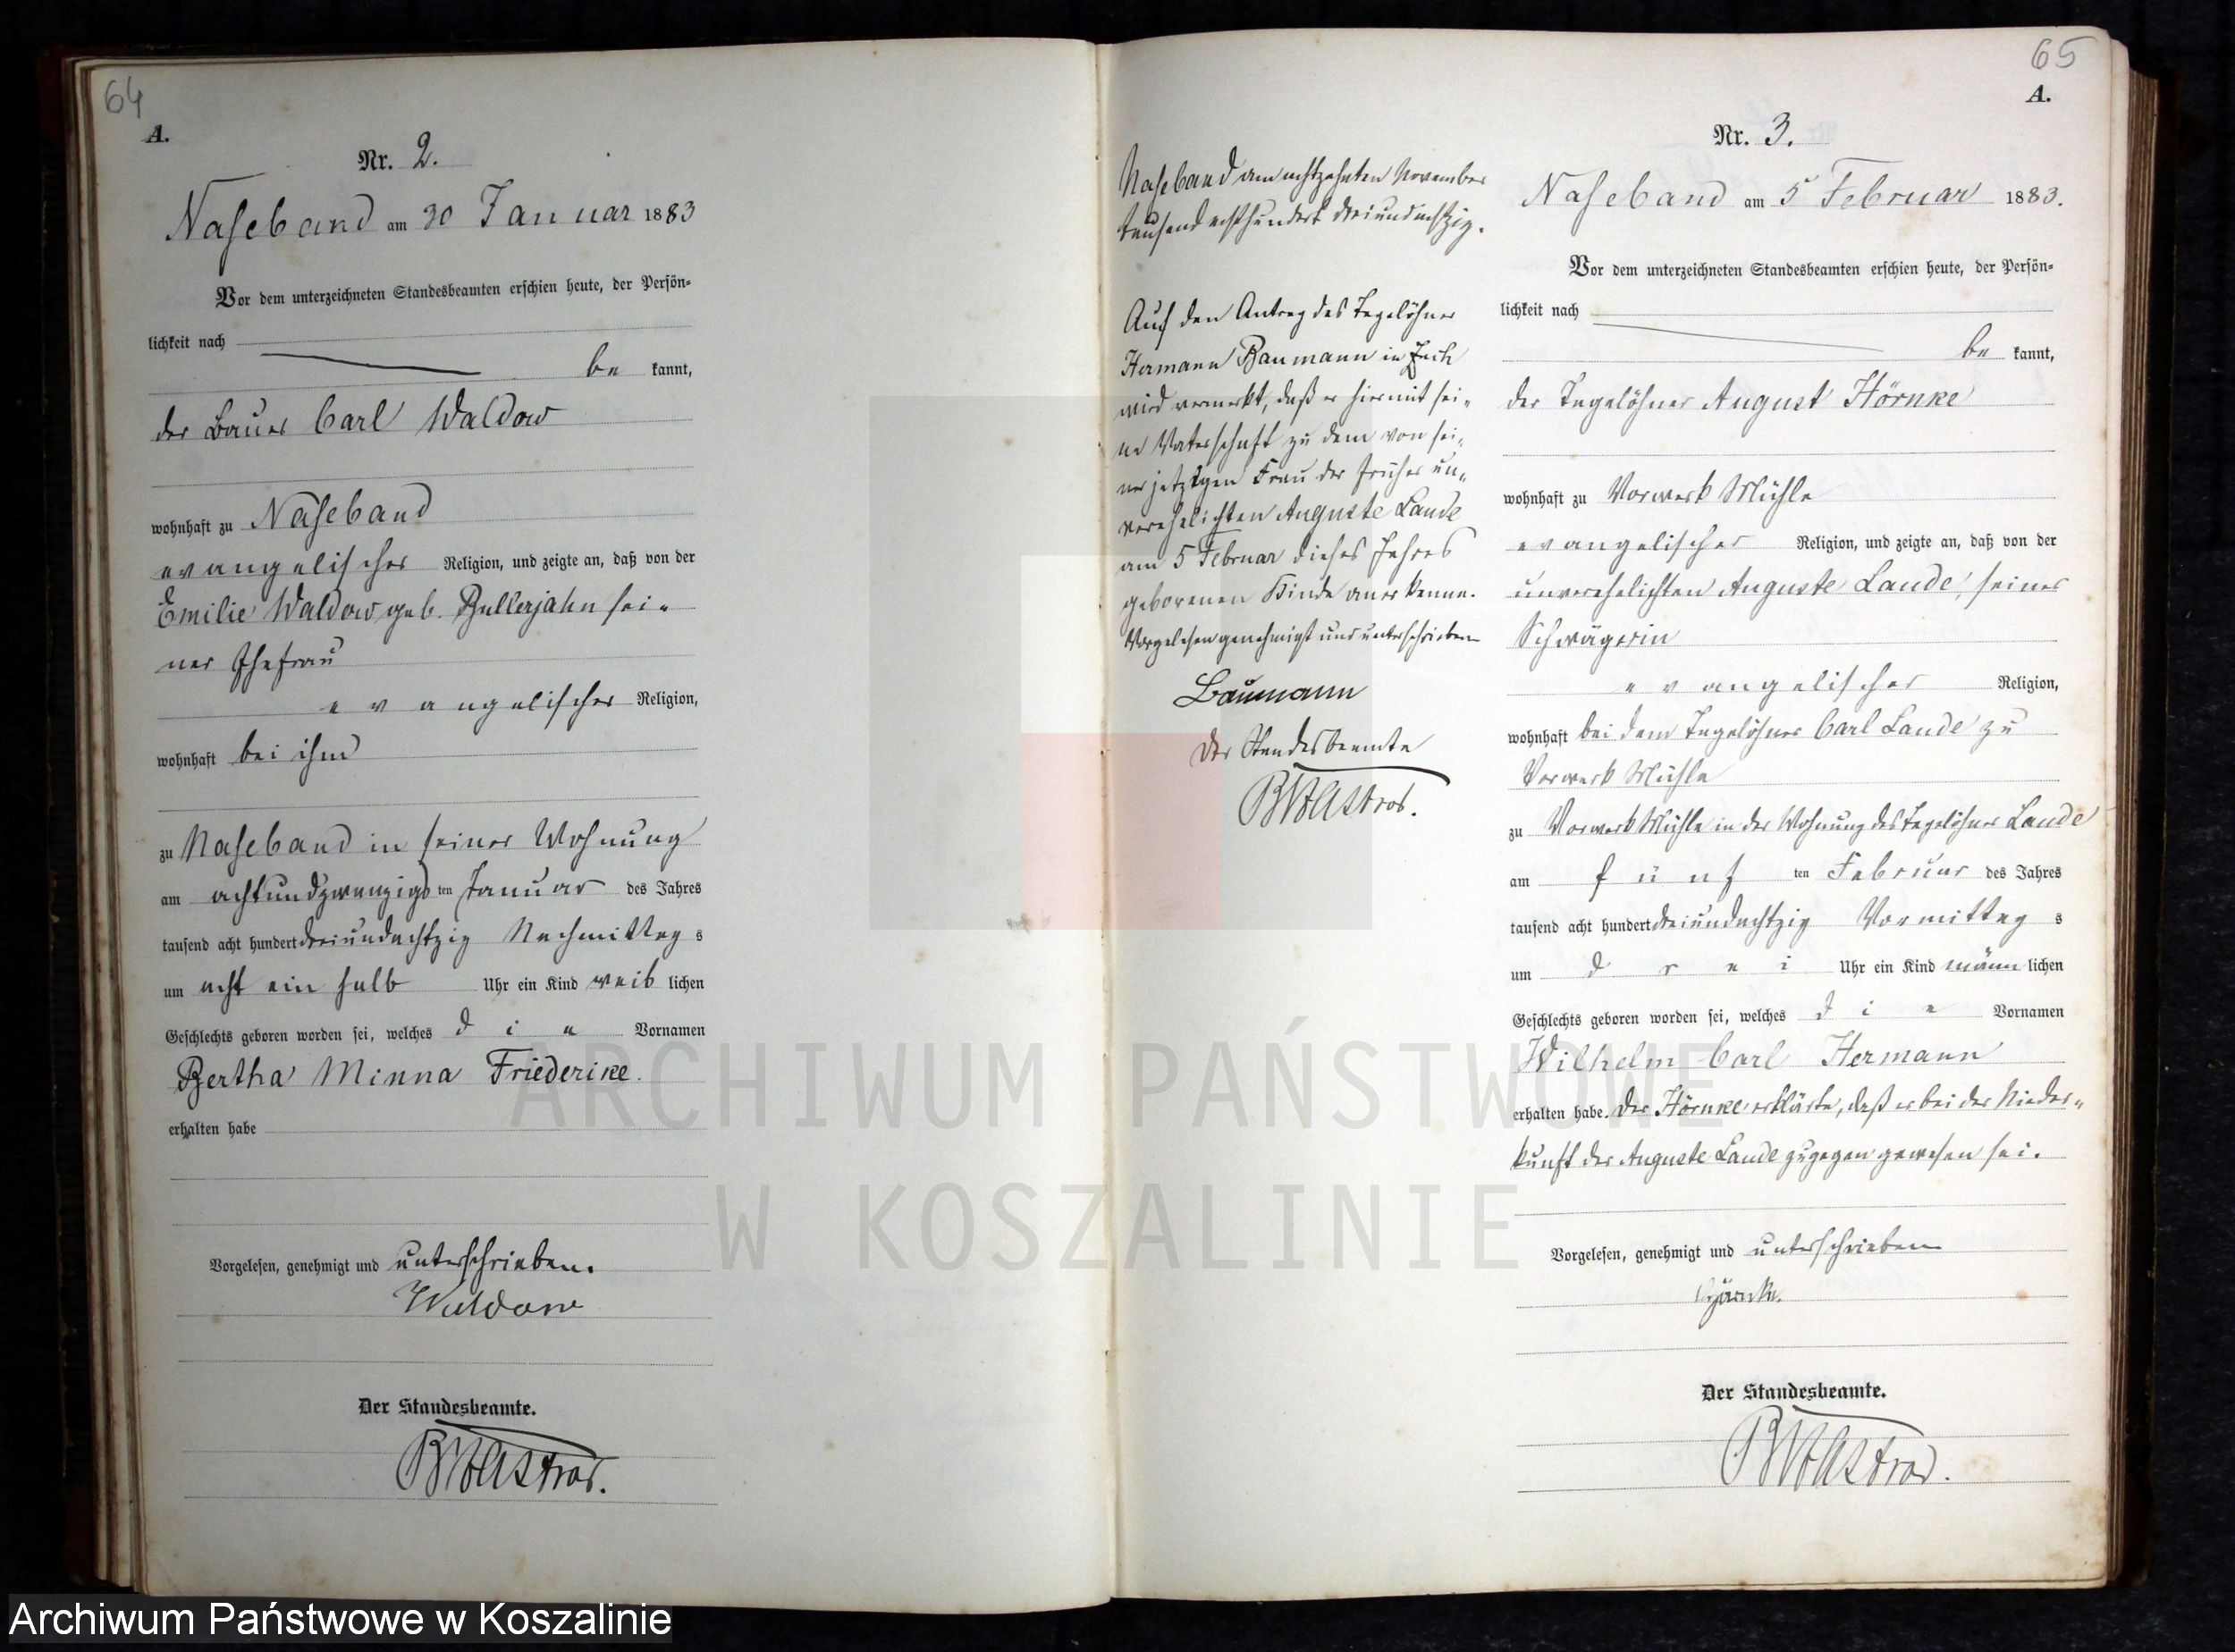 64
A.
Nr. 2.
Naseband am 30 Januar 1883
Vor dem unterzeichneten Standesbeamten erschien heute, der Persön-
lichkeit nach
be kannt,
der Bauer Carl Waldow
wohnhaft zu Naseband
evangelischer Religion, und zeigte an, daß von der
Emilie Waldow geb. Bullerjahn sei-
ner Ehefrau
evangelischer Religion,
wohnhaft bei ihm
zu Naseband in seiner Wohnung
am achtundzwanzigs ten Januar des Jahres
tausend acht hundert dreiundachtzig Nachmittag s
um acht ein halb Uhr ein Kind weib lichen
Geschlechts geboren worden sei, welches die Vornamen
Bertha Minna Friederike.
erhalten habe
Vorgelesen, genehmigt und unterschrieben.
Waldow
Der Standesbeamte.
65
A.
Nr. 3.
Naseband am 5 Februar 1883.
Vor dem unterzeichneten Standesbeamten erschien heute, der Persön-
lichkeit nach
be kannt,
der Tagelöhner August Hörnke
wohnhaft zu Vorwerk Mühle
evangelischer Religion, und zeigte an, daß von der
unverehelichten Auguste Lande, seiner
Schwägerin
evangelischer Religion,
wohnhaft bei dem Tagelöhner Carl Lande zu
Vorwerk Mühle
zu Vorwerk Mühle in der Wohnung des Tagelöhner Lande
am fünf ten Februar des Jahres
tausend acht hundert dreiundachtzig Vormittag s
um drei Uhr ein Kind männ lichen
Geschlechts geboren worden sei, welches die Vornamen
Wilhelm Carl Hermann
erhalten habe. Der Hörnke erklärte, daß er bei der Nieder-
kunft der Auguste Lande zugegen gewesen sei.
Vorgelesen, genehmigt und unterschrieben
Hörnke.
Der Standesbeamte.
Naseband am achtzehnten November
tausend achthundert dreiundachtzig.
Auf den Antrag des Tagelöhner
Hermann Baumann in
wird vermerkt, daß er hiermit sei-
ne Vaterschaft zu dem von sei-
ner jetzigen Frau der früher un-
verehelichten Auguste Lande
am 5 Februar dieses Jahres
geborenen Kinde anerkenne.
Vorgelesen genehmigt und unterschrieben
Baumann
Der Standesbeamte
ARCHIWUM PAŃSTWOWE
W KOSZALINIE
Archiwum Państwowe w Koszalinie